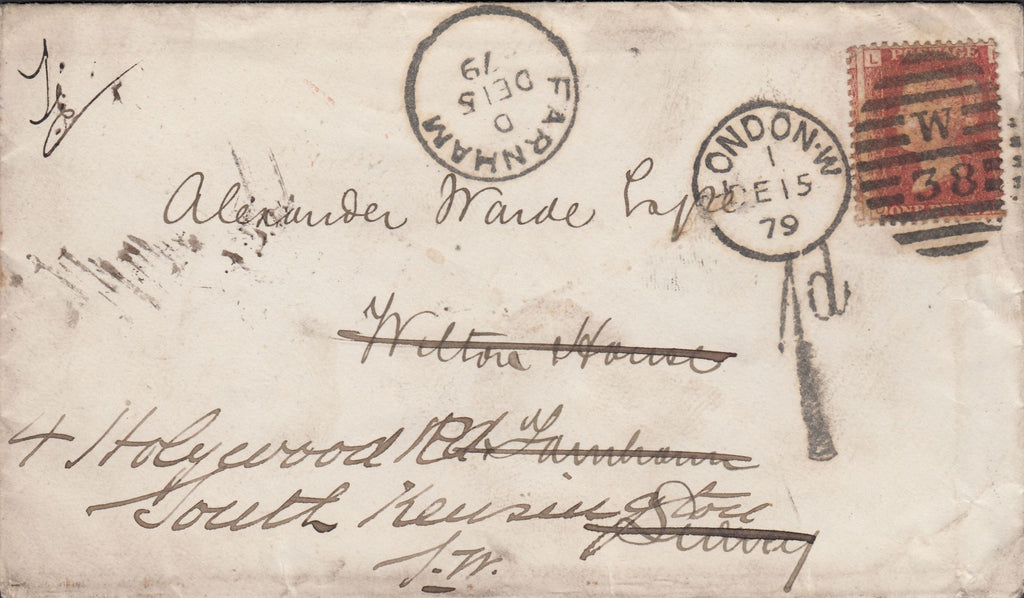 FARNHAM
D
DE 15
79
LONDON·W
1
DE 15
79
L
POSTAGE
W
38
Alexander Warde Esqre
1d
Wilton House
4 Holywood Rd Farnham
South Kensington Surrey
S.W.